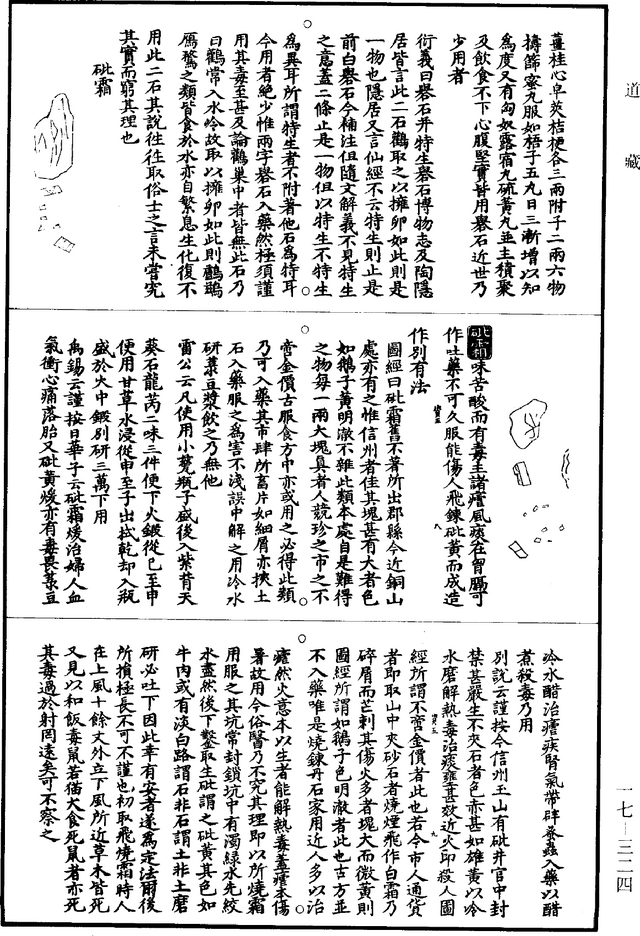 道藏
薑桂心皁莢桔梗各三兩附子二兩六物
擣篩蜜丸服如梧子五丸日三漸增以知
為度又有匈奴露宿丸硫黃丸並主積聚
及飲食不下心腹堅實皆用礜石近世乃
少用者
衍義曰礜石并特生礜石博物志及陶隱
居皆言此二石鸛取之以擁卵如此則是
一物也隱居又言仙經不云特生則止是
前白礜石今補注但隨文解義不見特生
之意蓋二條止是一物但以特生不特生
為異耳所謂特生者不附著他石為特耳
今用者絕少惟兩字礜石入藥然極須謹
用其毒至甚及論鸛巢中者皆無此石乃
曰鸛常入水冷故取以擁卵如此則鸕鷀
鴈鶩之類皆食於水亦自繁息生化復不
用此二石其說往往取俗士之言未嘗究
其實而窮其理也
砒霜
砒霜味苦酸而有毒主諸瘧風痰在胷膈可
作吐藥不可久服能傷人飛鍊砒黃而成造
作別有法
圖經曰砒霜舊不著所出郡縣今近銅山
處亦有之惟信州者佳其塊甚有大者色
如鵝子黃明澈不雜此類本處自是難得
之物每一兩大塊真者人競珍之市之不
啻金價古服食方中亦或用之必得此類
乃可入藥其市肆所畜片如細屑亦挾土
石入藥服之為害不淺誤中解之用冷水
研菉豆漿飲之乃無他
雷公云凡使用小甆瓶子盛後入紫背天
葵石龍芮二味三件便下火鍛從巳至申
便用甘草水浸從申至子出拭乾却入瓶
盛於火中鍛別研三萬下用
禹錫云謹按日華子云砒霜煖治婦人血
氣衝心痛落胎又砒黃煖亦有毒畏菉豆
冷水醋治瘧疾腎氣帶辟蚤蝨入藥以醋
煮殺毒乃用
別說云謹按今信州玉山有砒井官中封
禁甚嚴生不夾石者色赤甚如雄黃以冷
水磨解熱毒治痰壅甚效近火卽殺人圖
經所謂不啻金價者此也若今市人通貨
者卽取山中夾砂石者燒煙飛作白霜乃
碎屑而芒刺其傷火多者塊大而微黃則
圖經所謂如鵝子色明澈者此也古方並
不入藥唯是燒鍊丹石家用近人多以治
瘧然大意本以生者能解熱毒蓋瘧本傷
暑故用今俗醫乃不究其理卽以所燒霜
用服之其坑常封鎖坑中有濁綠水先絞
水盡然後下鑿取生砒謂之砒黃其色如
牛肉或有淡白路謂石非石謂土非土磨
研必吐下因此幸有安者遂為定法爾後
所損極長不可不謹也初取飛燒霜時人
在上風十餘丈外立下風所近草木皆死
又見以和飯毒鼠若猫犬食死鼠者亦死
其毒過於射罔遠矣可不察之
一七—三二四